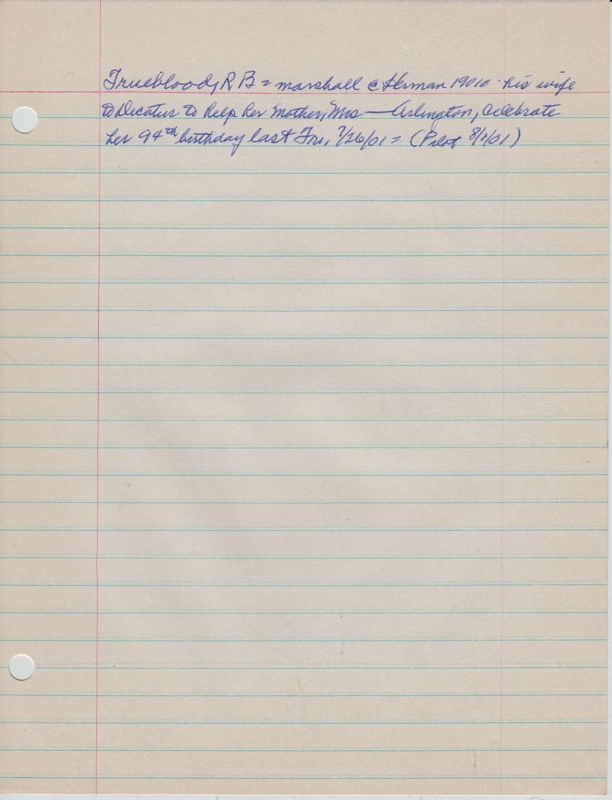 Trueblood, R B = marshall @ Herman 1901 = his wife
to Decatur to help her mother, Mrs — Arlington, celebrate
her 94th birthday last Fri, 7/26/01 = (Pilot 8/1/01)